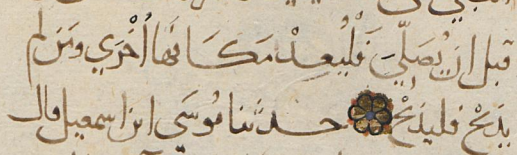 قبل ان يُصَلِّيَ فَلْيُعِدْ مَكَانَهَا أُخْرَي ومَن لم
يذبَحْ فليذبَحْ حدثنا مُوسَي ابن اسمعيل قال